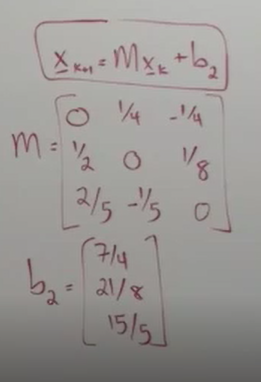 x_{k+1} = Mx_k + b_2
M = [0 1/4 -1/4
1/2 0 1/8
2/5 -1/5 0]
b_2 = [7/4
21/8
15/5]